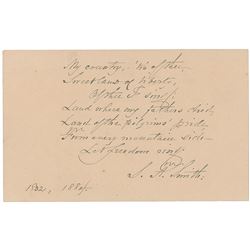 My country, 'tis of thee,
Sweet land of liberty,
Of thee I sing;
Land where my fathers died,
Land of the pilgrims' pride,
From every mountain side
Let freedom ring.
S. F. Smith.
1832, 1884.